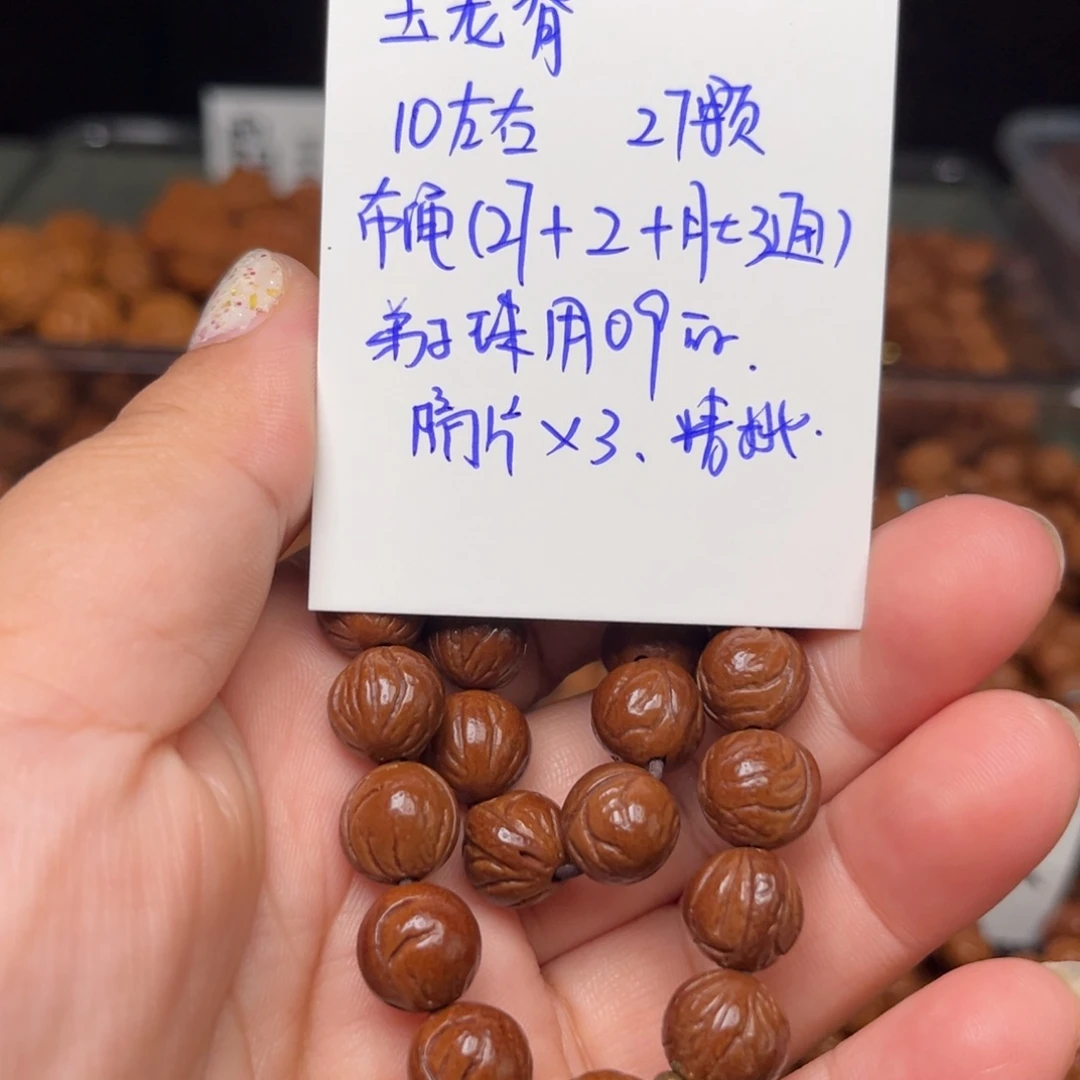 玉龙脊
10左右 27颗
布绳(27+2+肚3通)
弟子珠用09的.
隔片×3、精挑.